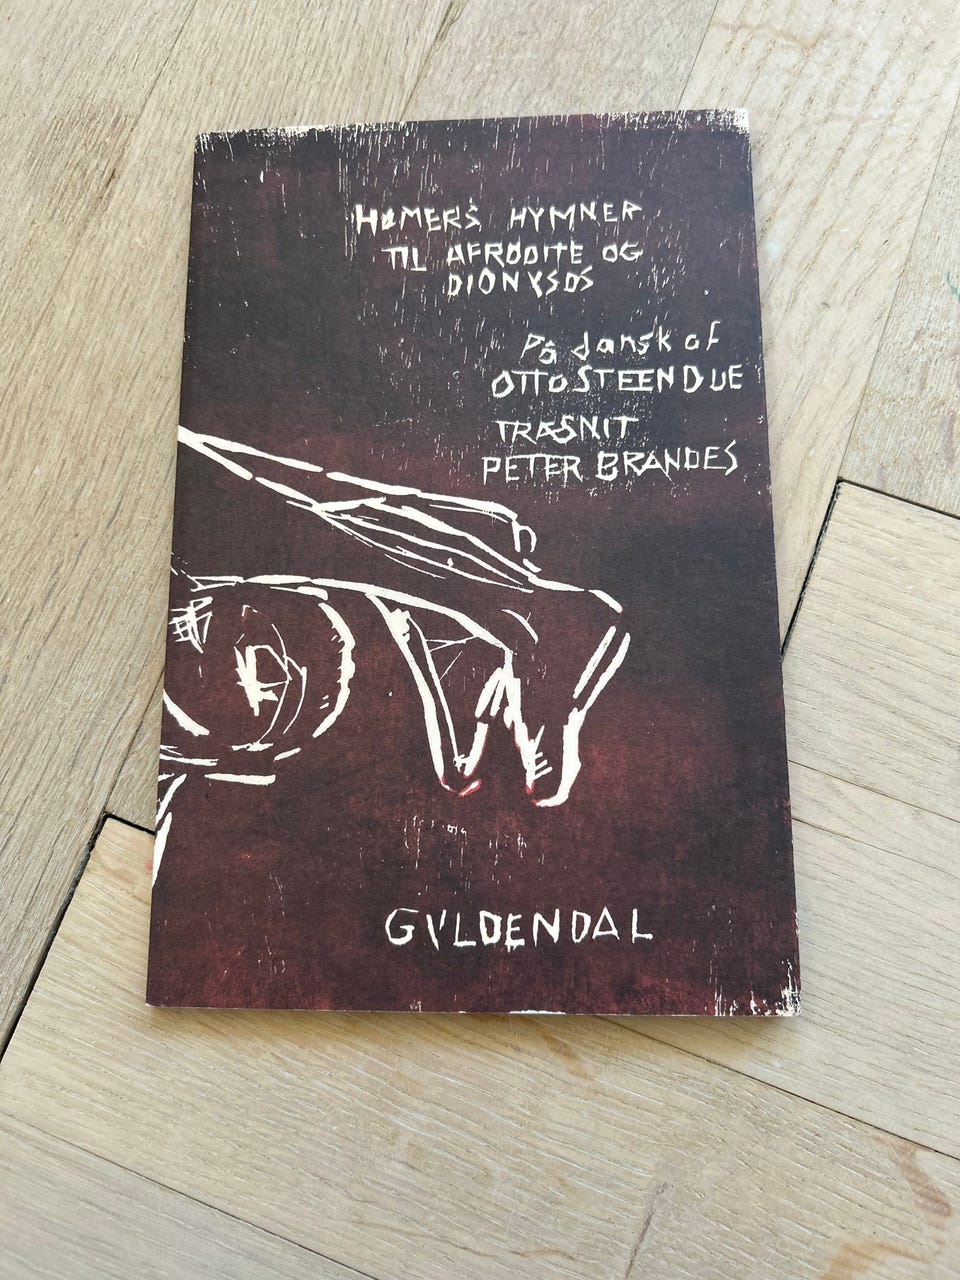 HOMERS HYMNER
TIL AFRODITE OG
DIONYSOS
På dansk af
OTTO STEEN DUE
TRÆSNIT
PETER BRANDES
GYLDENDAL